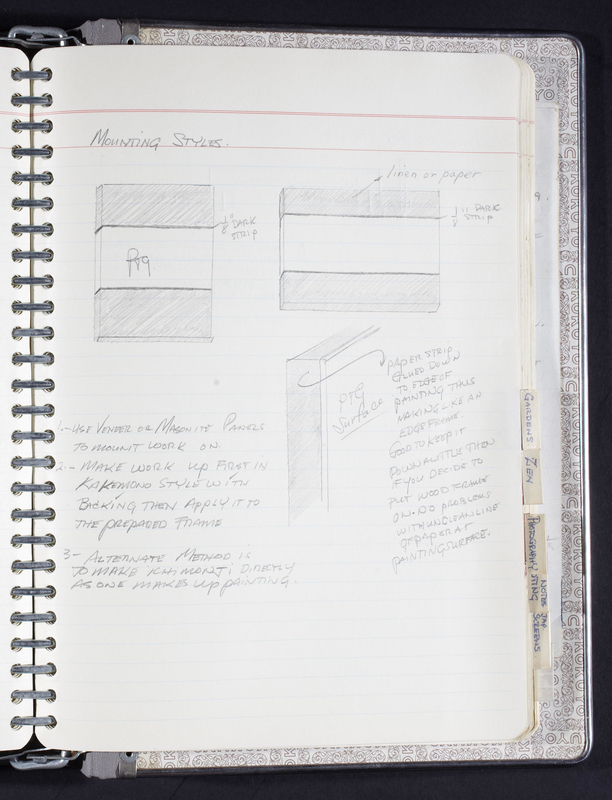 Mounting Styles.
linen or paper
1/8" DARK
STRIP
1/8" DARK
STRIP
Ptg.
PAPER STRIP
GLUED DOWN
TO EDGE OF
PAINTING THUS
MAKING LIKE AN
EDGE FRAME.
GOOD TO KEEP IT
DOWN A LITTLE THEN
IF YOU DECIDE TO
PUT WOOD FRAME
ON - NO PROBLEMS
WITH UNCLEAN LINE
OF PAPER AT
PAINTING SURFACE.
PTG
Surface
1.- USE VENEER OR MASONITE PANELS
TO MOUNT WORK ON.
2.- MAKE WORK UP FIRST IN
KAKEMONO STYLE WITH
BACKING THEN APPLY IT TO
THE PREPARED FRAME
3- ALTERNATE METHOD IS
TO MAKE ICHIMONJI DIRECTLY
AS ONE MAKES UP PAINTING.
GARDENS
ZEN
PHOTOGRAPHY
NOTES JAP
SCREENS
KOKUYO